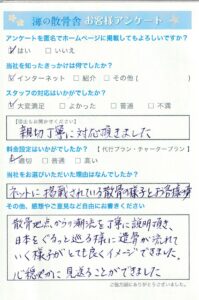 海の散骨舎 お客様アンケート
アンケートを匿名でホームページに掲載してもよろしいですか?
はい いいえ
当社を知ったきっかけは何でしたか?
インターネット 紹介 その他( )
スタッフの対応はいかがでしたか?
大変満足 よかった 普通 不満
親切丁寧に対応頂きました
料金設定はいかがでしたか?【代行プラン・チャータープラン】
適切 普通 高い
当社をお選びいただいた理由はなんでしたか?
ネットに掲載されている散骨の様子とお客様の声
その他、感想やご意見など自由にお書きください
散骨地点からの潮流を丁寧に説明頂き、
日本をぐるっと巡る様に遺骨が流れて
いく様子がとても良くイメージできました。
心穏やかに見送ることができました。
ご協力誠にありがとうございました。